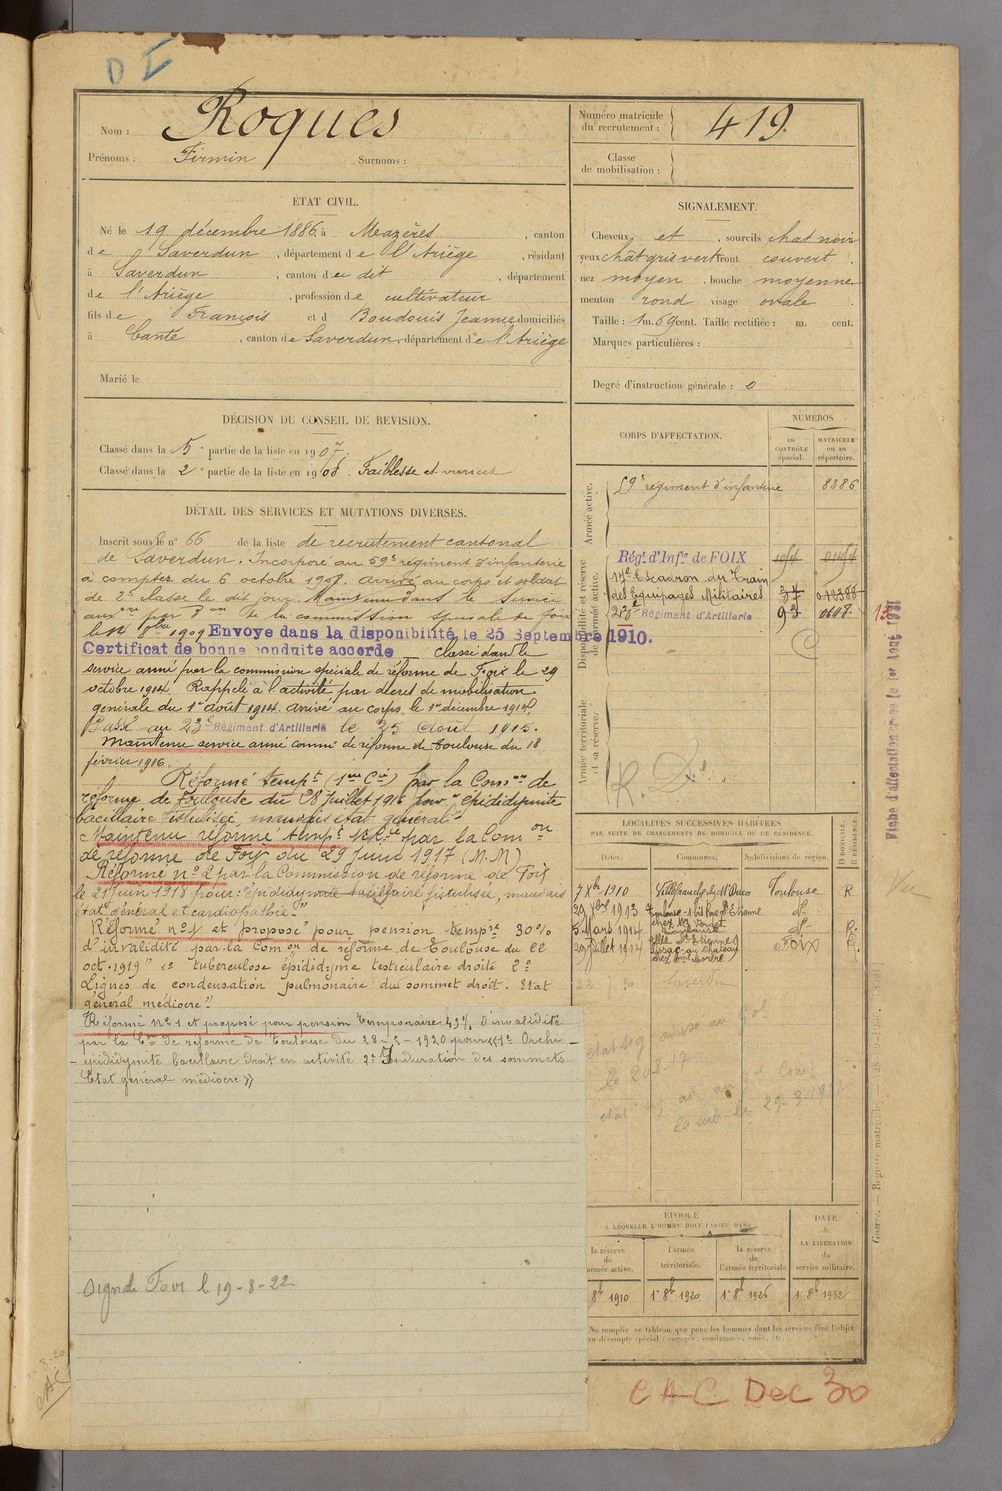 D I
Nom : Roques
Prénoms : Firmin Surnoms :
Numéro matricule du recrutement : 419.
Classe de mobilisation :
ÉTAT CIVIL.
Né le 19 décembre 1886, à Mazères, canton
de Saverdun, département de l'Ariège, résidant
à Saverdun, canton du dit, département
de l'Ariège, profession de cultivateur
fils de François et d Boudouis Jeanne domiciliés
à Canté, canton de Saverdun, département de l'Ariège
Marié le
SIGNALEMENT.
Cheveux et, sourcils chat noir
yeux chat gris vert front couvert.
nez moyen, bouche moyenne
menton rond visage ovale.
Taille : 1m. 69 cent. Taille rectifiée : m. cent.
Marques particulières :
Degré d'instruction générale : 0
DÉCISION DU CONSEIL DE REVISION.
Classé dans la 5e partie de la liste en 1907.
Classé dans la 2e partie de la liste en 1908. Faiblesse et varices
DÉTAIL DES SERVICES ET MUTATIONS DIVERSES.
Inscrit sous le n° 66 de la liste de recrutement cantonal
de Saverdun. Incorporé au 59e régiment d'infanterie
à compter du 6 octobre 1908. arrivé au corps et soldat
de 2e classe le dit jour. Maintenu dans le service
par de la commission spéciale de Foix
le 14 8bre 1909 Envoyé dans la disponibilité le 25 Septembre 1910.
Certificat de bonne conduite accordé Classé dans le
service armé par la commission spéciale de réforme de Foix le 29
octobre 1914. Rappelé à l'activité par décret de mobilisation
générale du 1er août 1914. arrivé au corps le 1er décembre 1914.
Passé au 23e Régiment d'Artillerie le 25 Août 1915.
Maintenu service armé Comm de réforme de Toulouse du 18
février 1916.
Réformé tempt (1ere Cie) par la Comon de
réforme de Toulouse du 28 Juillet 1916 pour "épididymite
bacillaire fistulisée, mauvais état général"
Maintenu réformé tempt par la Comon
de réforme de Foix du 29 Juin 1917 (M.M)
Réformé n° 2 par la Commission de réforme de Foix
le 21 Juin 1918 pour : "épididymite bacillaire fistulisée, mauvais
état général et cardiopathie."
Réformé n° 1 et proposé pour pension tempre 30%
d'invalidité par la Comon de réforme de Toulouse du 22
oct. 1919 " 1° tuberculose épididyme testiculaire droite 2°
Lignes de condensation pulmonaire du sommet droit. Etat
général médiocre".
Réformé N° 1 et proposé pour pension temporaire 45% d'invalidité
par la Con de réforme de Toulouse du 28-5-1920 pour « 1° Orchi-
-épididymite bacillaire droit en activité 2° Induration des sommets
Etat général médiocre »
Signalé Foix le 19-8-22
CORPS D'AFFECTATION.
NUMÉROS
AU CONTRÔLE spécial.
MATRICULE ou au répertoire.
Armée active.
59e régiment d'infanterie 8386
Disponibilité et réserve de l'armée active.
Régt. d'Infie de FOIX
17e Escadron du Train
des Equipages Militaires 37
23e Régiment d'Artillerie 93
Armée territoriale et sa réserve.
R. D.
LOCALITÉS SUCCESSIVES HABITÉES
PAR SUITE DE CHANGEMENTS DE DOMICILE OU DE RÉSIDENCE.
Dates. Communes. Subdivisions de région. D DOMICILE. R RÉSIDENCE.
7 Xbre 1910 Villefranche Toulouse R.
29 Xbre 1913 Toulouse - 1 bis Rue St Etienne do
5 Mars 1914 do R.
29 Juillet 1914 Foix R.
Saverdun
ÉPOQUE
À LAQUELLE L'HOMME DOIT PASSER DANS
la réserve de l'armée active.
l'armée territoriale.
la réserve de l'armée territoriale
DATE de LA LIBÉRATION du service militaire.
8bre 1910 1er 8bre 1920 1er 8bre 1926 1er 8bre 1932
Ne remplir ce tableau que pour les hommes dont les services font l'objet
d'un décompte spécial (engagés, condamnés, omis, etc.).
CAC Dec 30
Vu